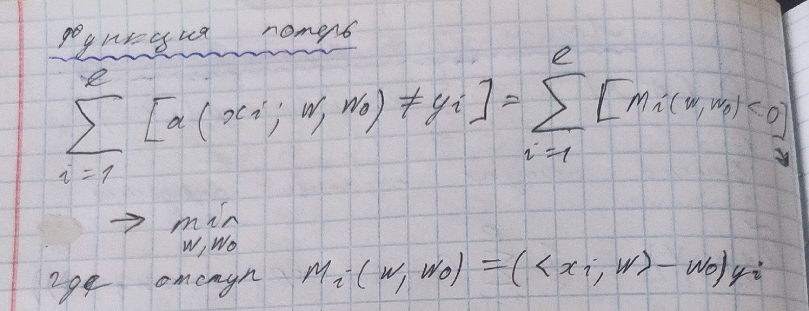 Функция потерь
∑_{i=1}^{ℓ} [a(xi; w, w0) ≠ yi] = ∑_{i=1}^{ℓ} [Mi(w, w0) < 0] →
→ min_{w, w0}
где отступ Mi(w, w0) = (<xi, w> - w0) yi